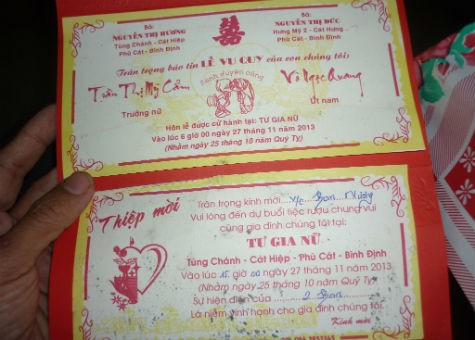 Bà:
NGUYỄN THỊ HƯƠNG
Tùng Chánh - Cát Hiệp
Phù Cát - Bình Định
囍
Bà:
NGUYỄN THỊ ĐỨC
Hưng Mỹ 2 - Cát Hưng
Phù Cát - Bình Định
Trân trọng báo tin LỄ VU QUY của con chúng tôi:
Trần Thị Mỹ Cẩm
Trưởng nữ
Võ Ngọc Quang
Út nam
Hôn lễ được cử hành tại: TƯ GIA NỮ
Vào lúc 6 giờ 00 ngày 27 tháng 11 năm 2013
(Nhằm ngày 25 tháng 10 năm Quý Tỵ)
Thiệp mời
Trân trọng kính mời
Vui lòng đến dự buổi tiệc rượu chung vui
cùng gia đình chúng tôi tại:
TƯ GIA NỮ
Tùng Chánh - Cát Hiệp - Phù Cát - Bình Định
Vào lúc giờ 00 ngày 27 tháng 11 năm 2013
(Nhằm ngày 25 tháng 10 năm Quý Tỵ)
Sự hiện diện của
Là niềm vinh hạnh cho gia đình chúng tôi
Kính mời